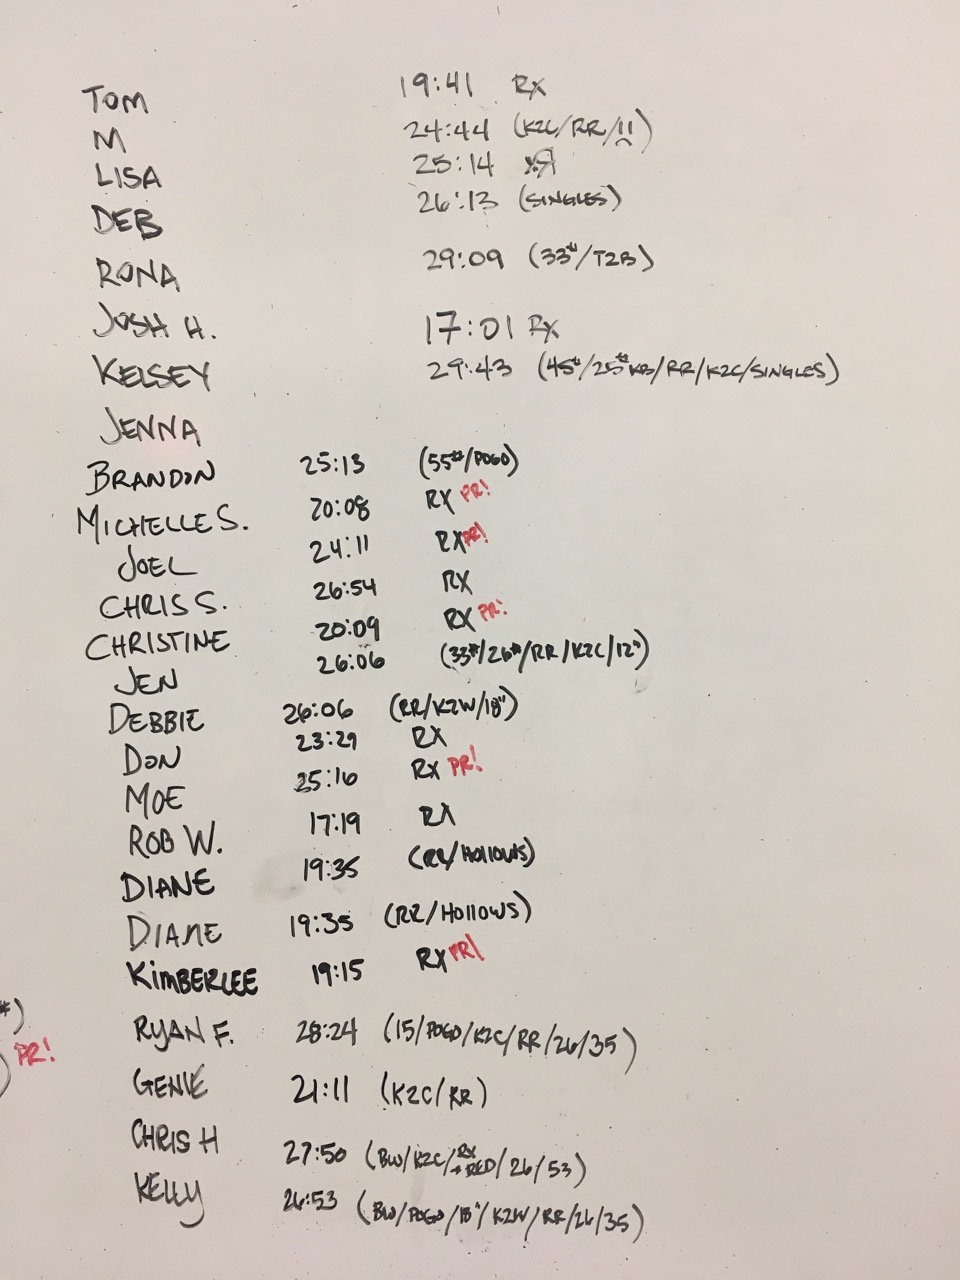 TOM 19:41 RX
M 24:44 (K2C/RR/!!)
LISA 25:14
DEB 26:13 (SINGLES)
RONA 29:09 (33#/T2B)
JOSH H. 17:01 RX
KELSEY 29:43 (45#/25#KB/RR/K2C/SINGLES)
JENNA
BRANDON 25:13 (55#/POGO)
MICHELLE S. 20:08 RX PR!
JOEL 24:11 RX PR!
CHRIS S. 26:54 RX
CHRISTINE 20:09 RX PR!
JEN 26:06 (33#/26#/RR/K2C/12")
DEBBIE 26:06 (RR/K2W/18")
DON 23:29 RX
MOE 25:16 RX PR!
ROB W. 17:19 RX
DIANE 19:35 (RR/HOLLOWS)
DIANE 19:35 (RR/HOLLOWS)
KIMBERLEE 19:15 RX PR!
#)
RYAN F. 28:24 (15/POGO/K2C/RR/26/35)
) PR!
GENIE 21:11 (K2C/RR)
CHRIS H 27:50 (BW/K2C/RX+RED/26/53)
KELLY 26:53 (BW/POGO/18"/K2W/RR/26/35)